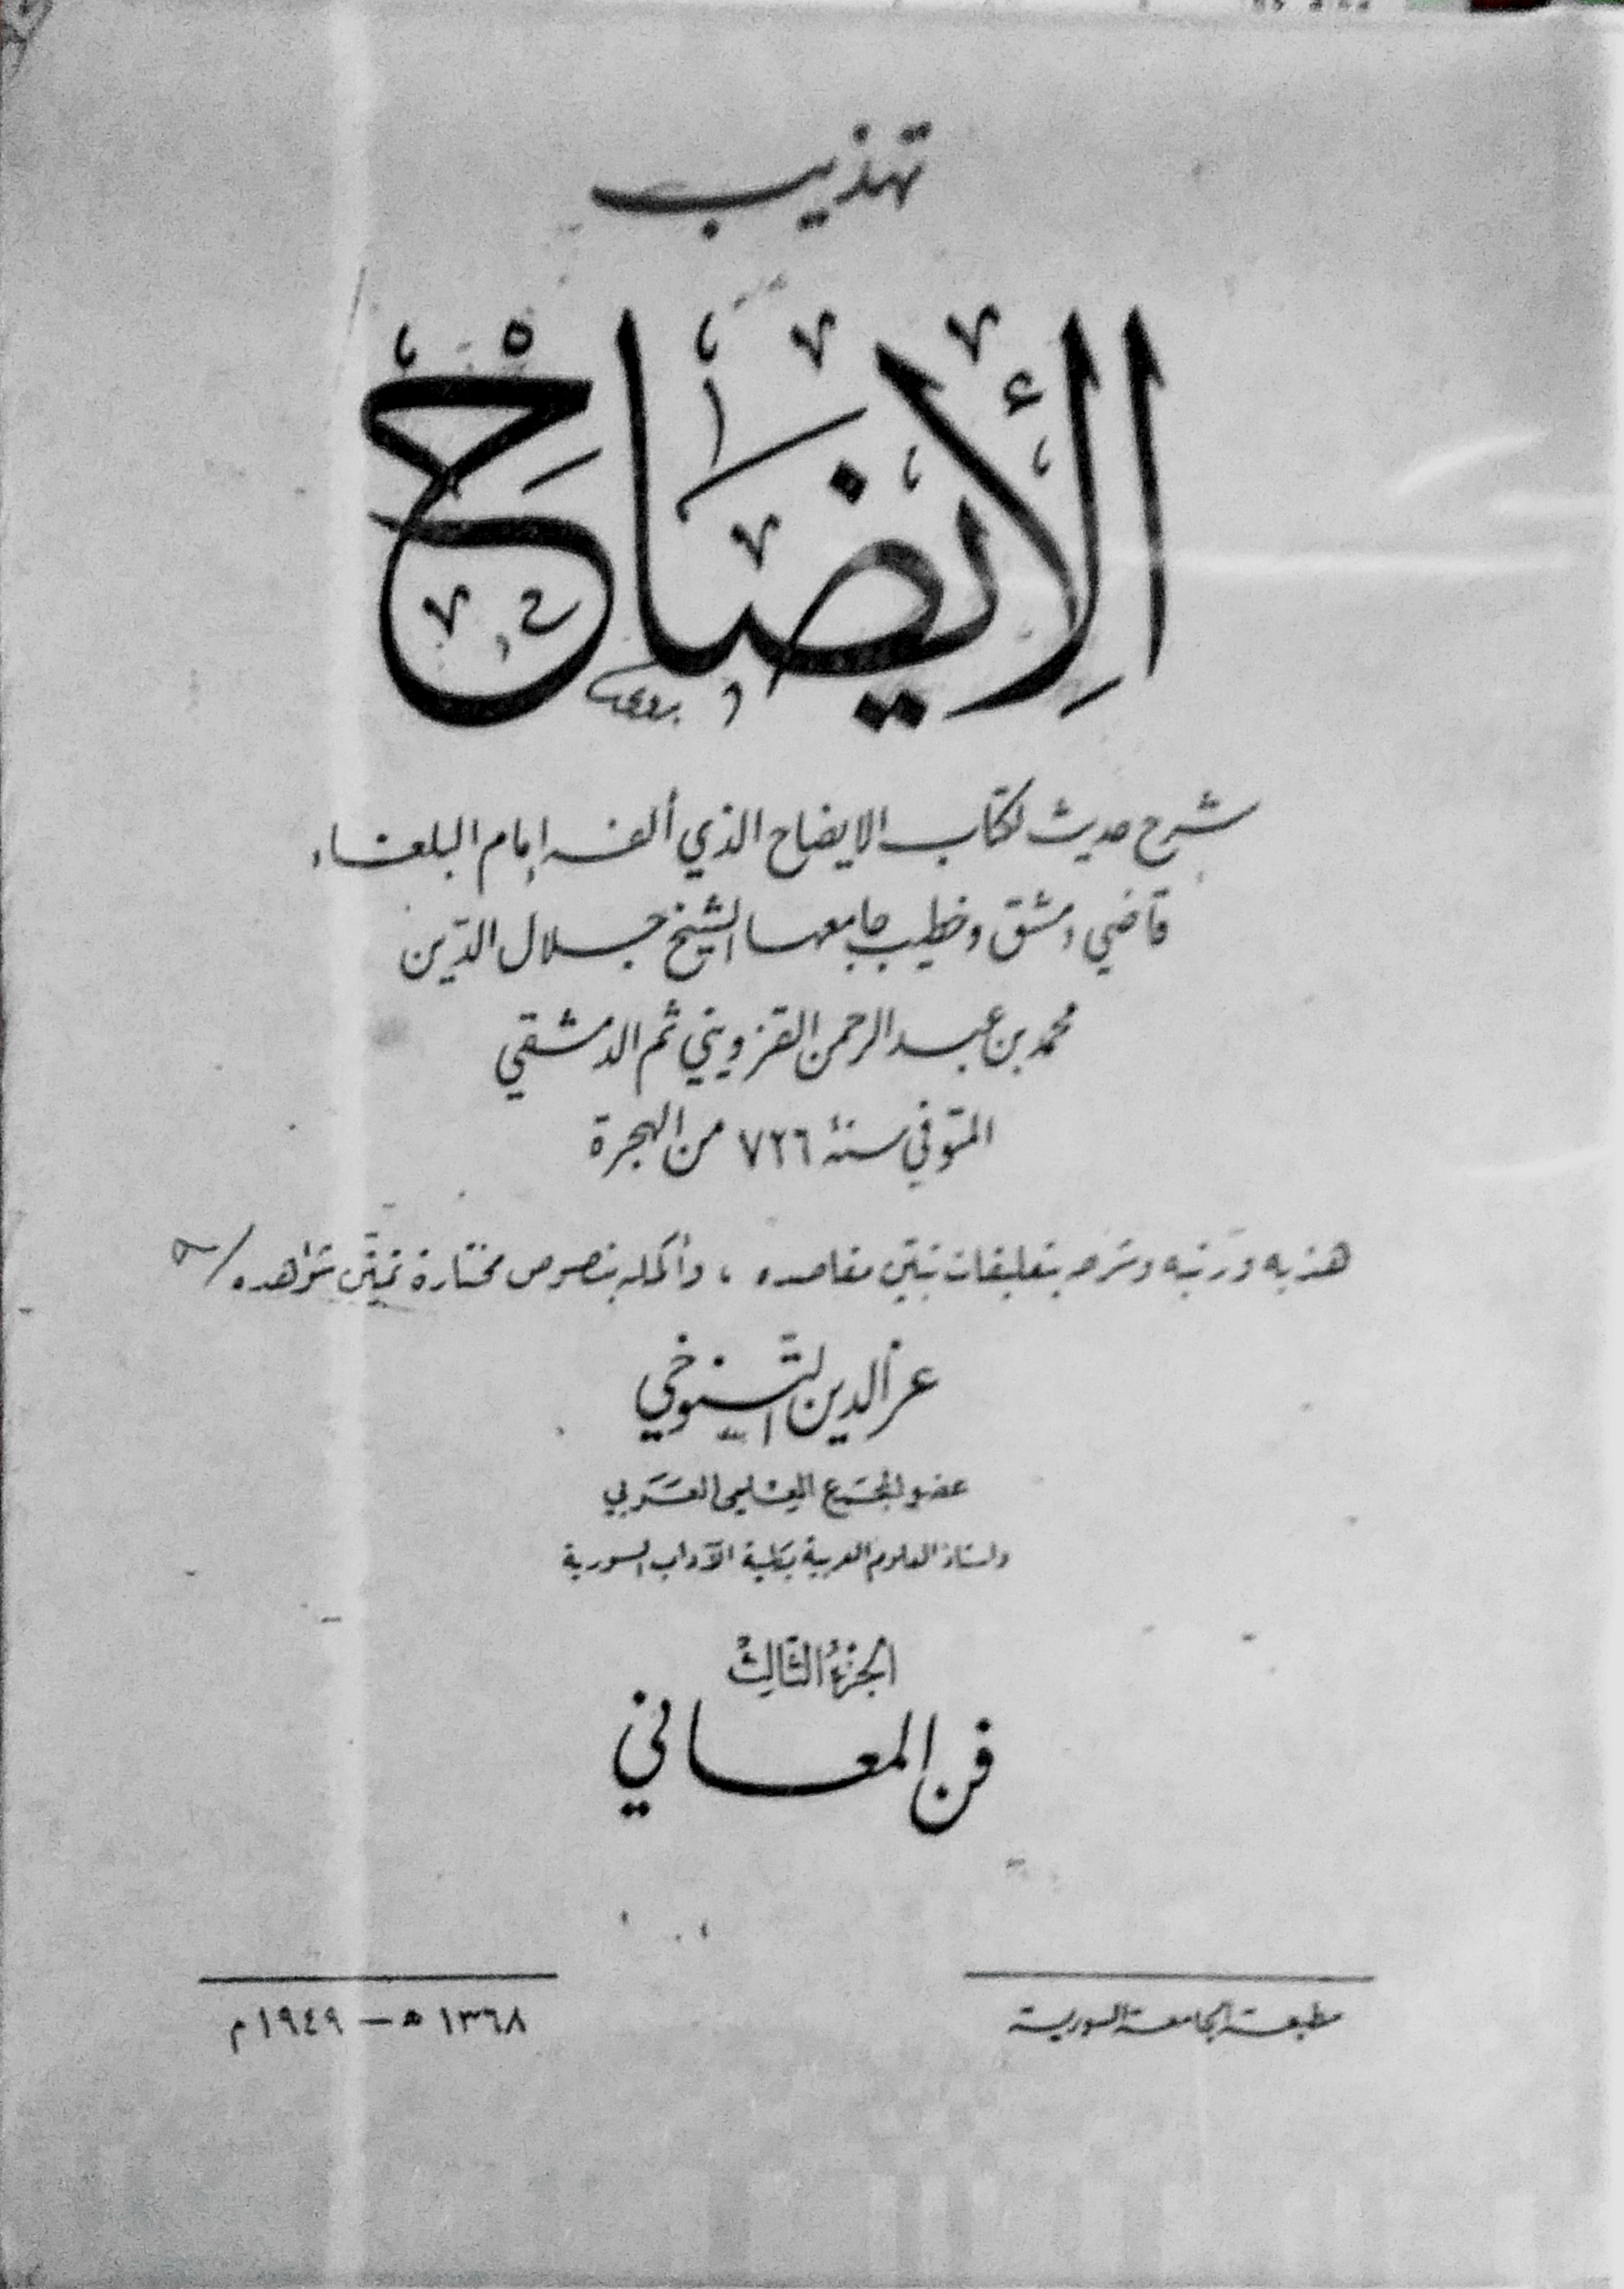 تهذيب
الإيضاح
شرح حديث لكتاب الايضاح الذي ألفه إمام البلغاء
قاضي دمشق وخطيب جامعها الشيخ جلال الدّين
محمد بن عبد الرحمن القزويني ثم الدمشقي
المتوفي سنة ٧٢٦ من الهجرة
هذبه ورتبه وشرحه بتعليقات تبيّن مقاصده ، وأكمله بنصوص مختارة تميّن شواهده
عز الدين التنوخي
عضو المجمع العلمي العربي
وأستاذ العلوم العربية بكلية الآداب السورية
الجزء الثالث
فن المعاني
مطبعة الجامعة السورية
١٣٦٨ هـ — ١٩٤٩ م